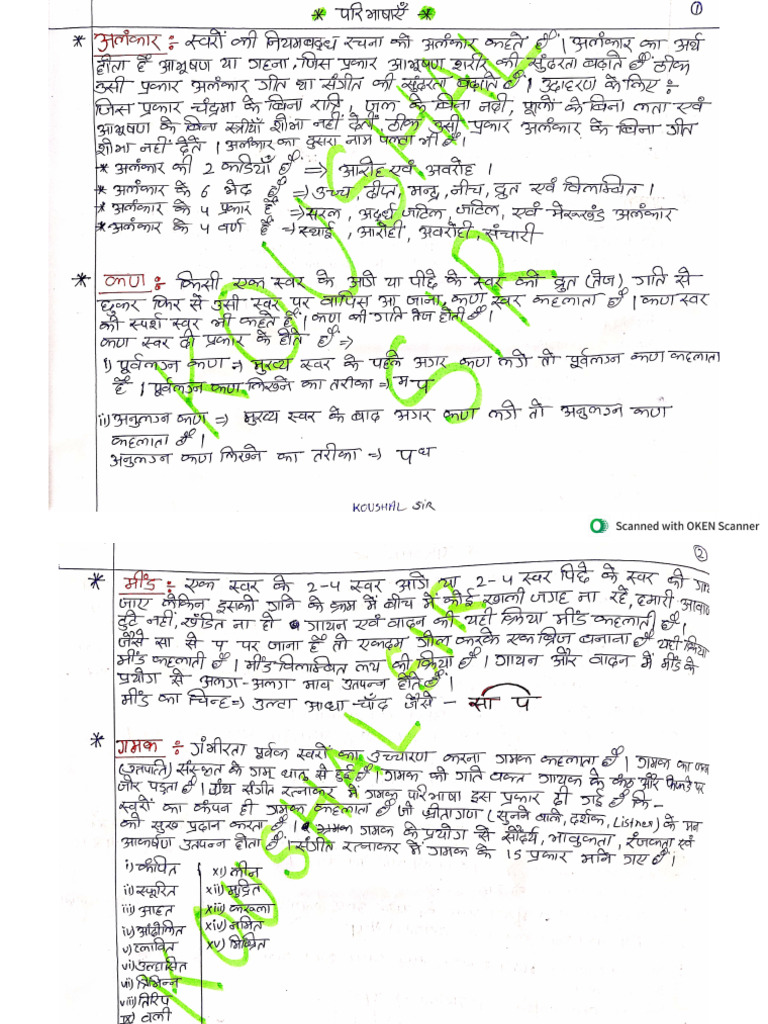 * परिभाषाएँ *
①
* अलंकार :- स्वरों की नियमबद्ध रचना को अलंकार कहते हैं। अलंकार का अर्थ
होता है आभूषण या गहना, जिस प्रकार आभूषण शरीर की सुंदरता बढ़ाते हैं ठीक
उसी प्रकार अलंकार गीत था संगीत की सुंदरता बढ़ाते हैं। उदाहरण के लिए :-
जिस प्रकार चंद्रमा के बिना रात्रि, जल के बिना नदी, फूलों के बिना लता एवं
आभूषण के बिना स्त्रीयाँ शोभा नहीं देती ठीक उसी प्रकार अलंकार के बिना गीत
शोभा नहीं देते। अलंकार का दुसरा नाम पल्टा भी है।
* अलंकार की 2 कडियाँ हैं => आरोह एवं अवरोह।
* अलंकार के 6 भेद हैं => उच्च, दीप्त, मन्द्र, नीच, द्रुत एवं विलाम्बित।
* अलंकार के 4 प्रकार हैं => सरल, अर्द्ध जटिल, जटिल, एवं मेरूखंड अलंकार
* अलंकार के 4 वर्ण हैं => स्थाई, आरोही, अवरोही, संचारी
* कण :- किसी एक स्वर के आगे या पीछे के स्वर को द्रुत (तेज) गति से
छुकर फिर से उसी स्वर पर वापिस आ जाना, कण स्वर कहलाता है। कण स्वर
को स्पर्श स्वर भी कहते हैं। कण की गति तेज होती है।
कण स्वर दो प्रकार के होते हैं =>
i) पूर्वलग्न कण => मुख्य स्वर के पहले अगर कण लगे तो पूर्वलग्न कण कहलाता
है। पूर्वलग्न कण लिखने का तरीका => म प
ii) अनुलग्न कण => मुख्य स्वर के बाद अगर कण लगे तो अनुलग्न कण
कहलाता है।
अनुलग्न कण लिखने का तरीका => प ध
KOUSHAL SIR
KOUSHAL SIR
Scanned with OKEN Scanner
②
* मींड :- एक स्वर के 2-4 स्वर आगे या 2-4 स्वर पिछे के स्वर को
जाए लेकिन इसकी गति के क्रम में बीच में कोई खाली जगह ना रहे, हमारी आवाज
टुटे नहीं, खंडित ना हो गायन एवं वादन की यही क्रिया मींड कहलाती है।
जैसे सा से प पर जाना है तो एकदम गोल करके एक ब्रिज बनाना है यही क्रिया
मींड कहलाती है। मींड विलाम्बित लय की क्रिया है। गायन और वादन में मींड के
प्रयोग से अलग-अलग भाव उत्पन्न होते हैं।
मींड का चिन्ह => उल्टा आधा-चाँद जैसे - सा प
* गमक :- गंभीरता पूर्वक स्वरों का उच्चारण करना गमक कहलाता है। गमक का
(उत्पत्ति) संस्कृत के गम् धातु से हुई है। गमक की गाते वक्त गायक के कंठ और फेफड़े पर
जोर पड़ता है। ग्रंथ संगीत रत्नाकर में गमक परिभाषा इस प्रकार दी गई है कि-
स्वरों का कंपन ही गमक कहलाता है जो श्रोतागण (सुनने वाले, दर्शक, Listner) के मन
को सुख प्रदान करता है। गमक के प्रयोग से सौंदर्य, भावुकता, रंजकता एवं
आकर्षण उत्पन्न होता है। संगीत रत्नाकर में गमक के 15 प्रकार माने गए हैं।
i) कंपित
ii) स्फूरित
iii) आहत
iv) आंदोलित
v) प्लावित
vi) उल्हासित
vii) त्रिभिन्न
viii) तिरिप
ix) वली
xi) लीन
xii) मुद्रित
xiii) कुरूला
xiv) नमित
xv) मिश्रित
KOUSHAL SIR